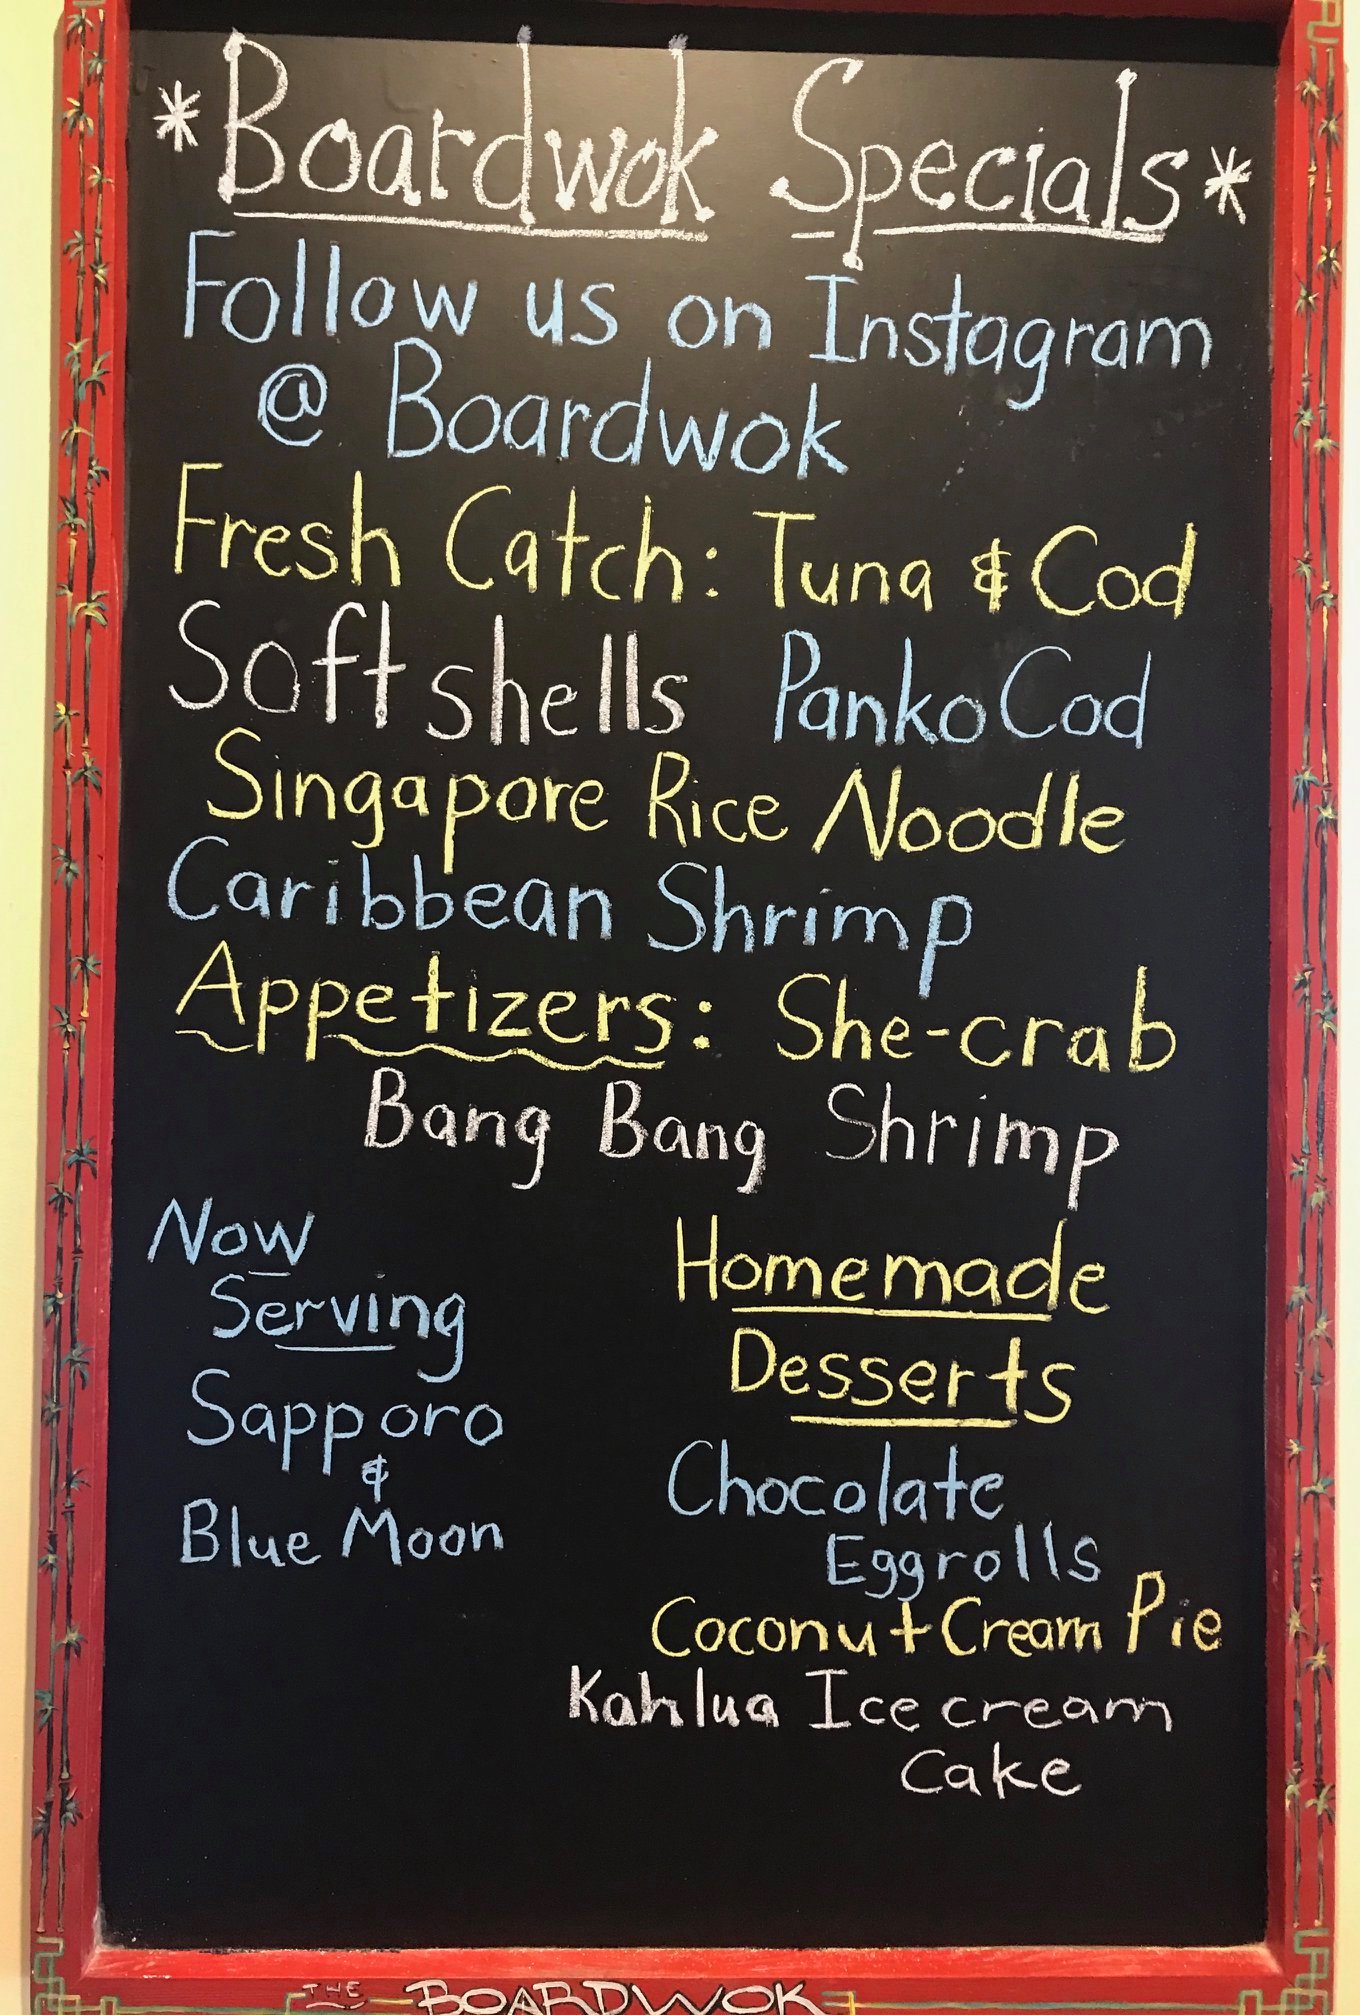 *Boardwok Specials*
Follow us on Instagram
@ Boardwok
Fresh Catch: Tuna & Cod
Soft shells Panko Cod
Singapore Rice Noodle
Caribbean Shrimp
Appetizers: She-crab
Bang Bang Shrimp
Now
Serving
Sapporo
&
Blue Moon
Homemade
Desserts
Chocolate
Eggrolls
Coconut Cream Pie
Kahlua Ice cream
Cake
THE BOARDWOK